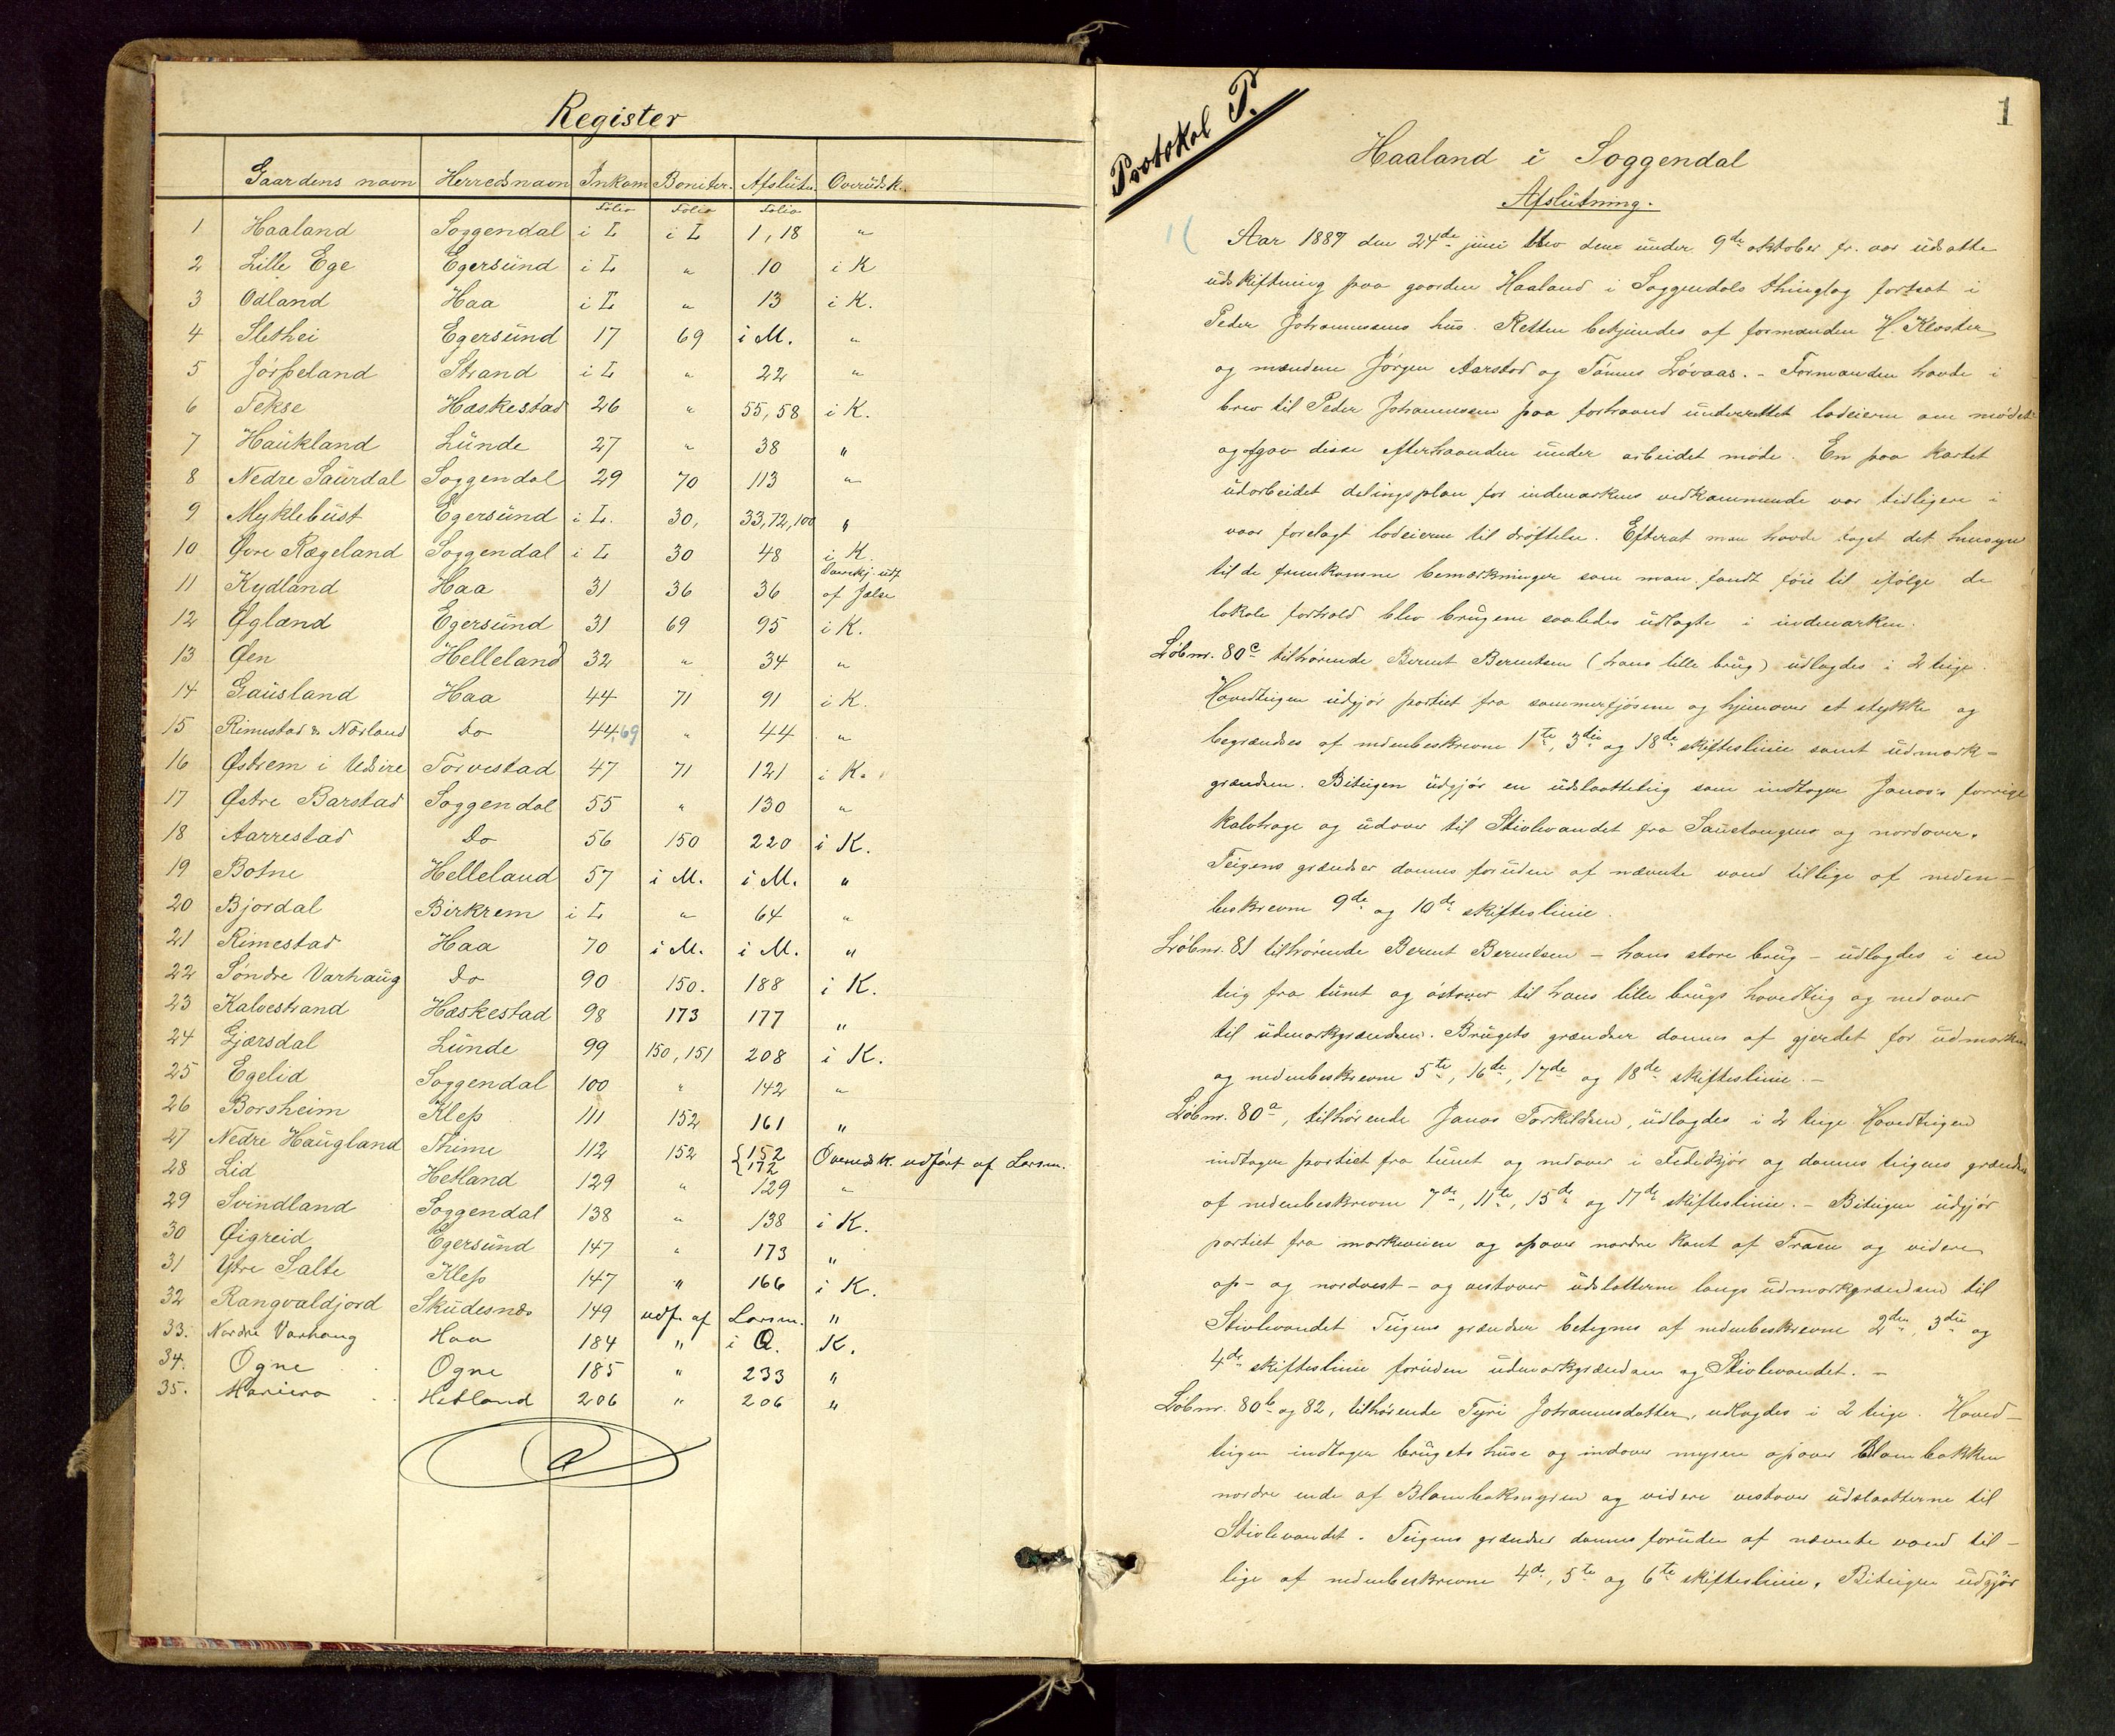 Register
Gaardens navn Herredsnavn Inkom Boniter. Afslutn. Overudsk.
Folio Folio Folio
1 Haaland Soggendal i L i L 1, 18 "
2 Lille Ege Egersund i L " 10 i K
3 Odland Haa i L " 13 i K.
4 Slethei Egersund 17 69 i M. "
5 Jørpeland Strand i L " 22 "
6 Tekse Hæskestad 26 " 55, 58 i K.
7 Haukland Lunde 27 " 38 "
8 Nedre Saurdal Soggendal 29 70 113 "
9 Myklebust Egersund i L. 30, 33, 72, 100 "
10 Øvre Rægeland Soggendal i L 30 48 i K.
11 Kydland Haa 31 36 36 udf. af Jælse
12 Øgland Egersund 31 69 95 i K.
13 Øen Helleland 32 " 34 "
14 Gausland Haa 44 71 91 i K.
15 Rimestad & Nærland Do 44, 69 " 44 "
16 Østrem i Udsire Torvestad 47 71 121 i K.
17 Østre Barstad Soggendal 55 " 130 "
18 Aarrestad Do 56 150 220 i K.
19 Botne Helleland 57 i M. i M. "
20 Bjordal Birkrem i L " 64 "
21 Rimestad Haa 70 i M. i M. "
22 Søndre Varhaug Do 90 150. 188 i K.
23 Kalvestrand Hæskestad 98 173 177 "
24 Gjærsdal Lunde 99 150, 151 208 i K.
25 Egelid Soggendal 100 " 142 "
26 Borsheim Klep 111 152 161 "
27 Nedre Haugland Thime 112 152 {152 172 Overudsk. udført af Larsen.
28 Lid Hetland 129 " 129 "
29 Svindland Soggendal 138 " 138 i K.
30 Øigreid Egersund 147 " 173 "
31 Ytre Salte Klep 147 " 166 i K.
32 Rangvaldjord Skudesnæs 149 udf. af Larsen. "
33. Nordre Varhaug Haa 184 " i Q. K.
34. Ogne Ogne 185 " 233 "
35. Mariero Hetland 206 " 206 "
Protokol P.
1
Haaland i Soggendal
Afslutning.
Aar 1887 den 24de juni blev den under 9de oktober f.. var udsatte
udskiftning paa gaarden Haaland i Soggendals thinglag fortsat i
Peder Johannessens hus. Retten betjendes af formanden H. Kloster
og mændene Jørgen Aarstad og Tønnes Løvaas. - Formanden havde i
brev til Peder Johannessen paa forhaand underrettet lodeierne om mødet
og gav disse efterhaanden under arbeidet møde. En paa kartet
udarbeidet delingsplan for indmarkens vedkommende var tidligere i
vaar forelagt lodeierne til drøftelse. Efterat man havde taget det hensyn
til de fremkomne bemærkninger som man fandt føie til ifølge de
lokale forhold blev brugene saaledes udlagte i indmarken.
Løbnr. 80c tilhørende Bernt Berntsen (hans lille brug) udlagdes i 2 teige.
Hovedteigen udgjør partiet fra sommerfjøsene og hjemover et stykke og
begrændses af nedenbeskrevne 1te, 3die og 18de skifteslinie samt udmark-
grændsen. Biteigen udgjør en udslaatteteig som indtager Janas's forrige
kalvhage og udover til Stivlevandet fra Saustangens og nordover.
Teigens grændser dannes foruden af nævnte vand tillige af neden-
beskrevne 9de og 10de skifteslinie.
Løbnr. 81 tilhørende Bernt Berntsen - hans store brug - udlagdes i en
teig fra tunet og østover til hans lille brugs hovedteig og nedover
til udmarkgrændsen. Brugets grændser dannes af gjerdet for udmarken
og nedenbeskrevne 5te, 16de, 17de og 18de skifteslinie. -
Løbnr. 80a, tilhørende Janas Torkildsen, udlagdes i 2 teige Hovedteigen
indtager partiet fra tunet og nedover i og dannes teigens grændser
af nedenbeskrevne 7de, 11te, 15de og 17de skifteslinie. - Biteigen udgjør
partiet fra markeveien og opover nordre kant af Traen og videre
op- og nordvest- og vestover udslatterne langs udmarkgrændsen til
Stivlevandet Teigens grændser betegnes af nedenbeskrevne 2den, 3die og
4de skifteslinie foruden udmarkgrændsen og Stivlevandet. -
Løbnr. 80b og 82, tilhørende Tyri Johannesdatter, udlagdes i 2 teige. Hoved-
teigen indtager brugets huse og indover myren opover Blombakken
nordre ende af Blombakmyren og videre vestover udslaatterne til
Stivlevandet. Teigens grændser dannes foruden af nævnte vand til-
lige af nedenbeskrevne 4de, 5te og 6te skifteslinie. Biteigen udgjør